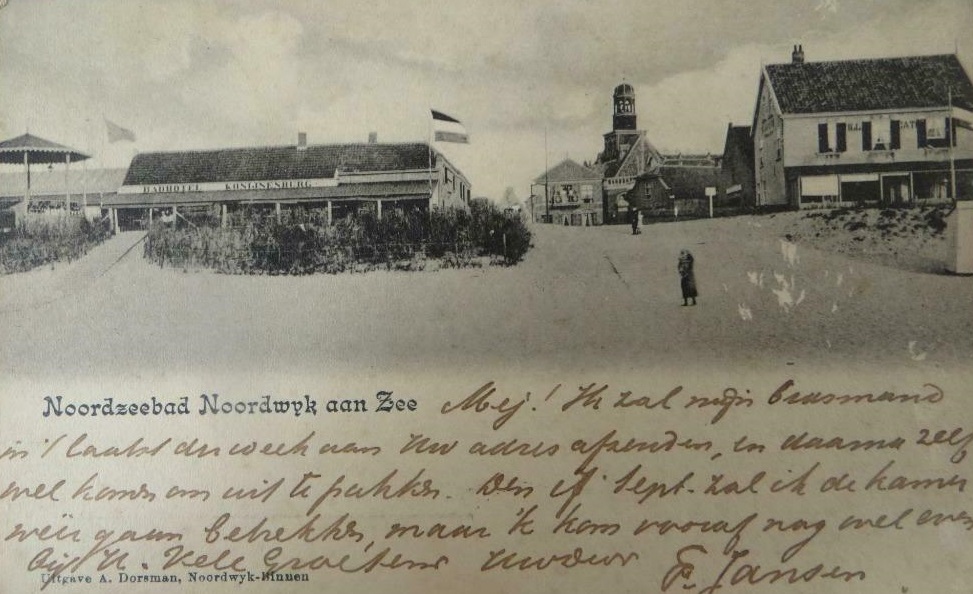 BADHOTEL KONIJNENBURG
Noordzeebad Noordwyk aan Zee
Mej! Ik zal mijn
in 't laatst der week aan Uw adres afzenden, en daarna zelf
wel komen om uit te pakken. Den Sept. zal ik de kamer
weer gaan betrekken, maar 'k kom vooraf nog wel even
bij U. Vele Groetens Uwdwr F. Jansen
Uitgave A. Dorsman, Noordwyk-Binnen